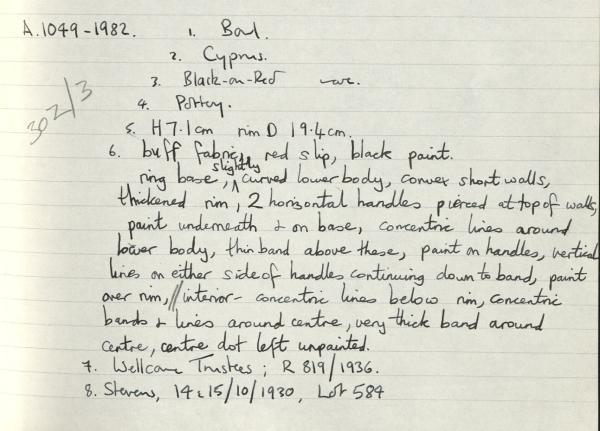 A.1049-1982. 1. Bowl.
2. Cyprus.
3. Black-on-Red ware.
302/3
4. Pottery.
5. H 7.1cm rim D 19.4cm.
6. buff fabric, red slip, black paint.
ring base, slightly curved lower body, convex short walls,
thickened rim, 2 horizontal handles pierced at top of walls,
paint underneath & on base, concentric lines around
lower body, thin band above these, paint on handles, vertical
lines on either side of handles continuing down to band, paint
over rim, // interior - concentric lines below rim, concentric
bands & lines around centre, very thick band around
centre, centre dot left unpainted.
7. Wellcome Trustees; R 819/1936.
8. Stevens, 14 & 15/10/1930, Lot 584